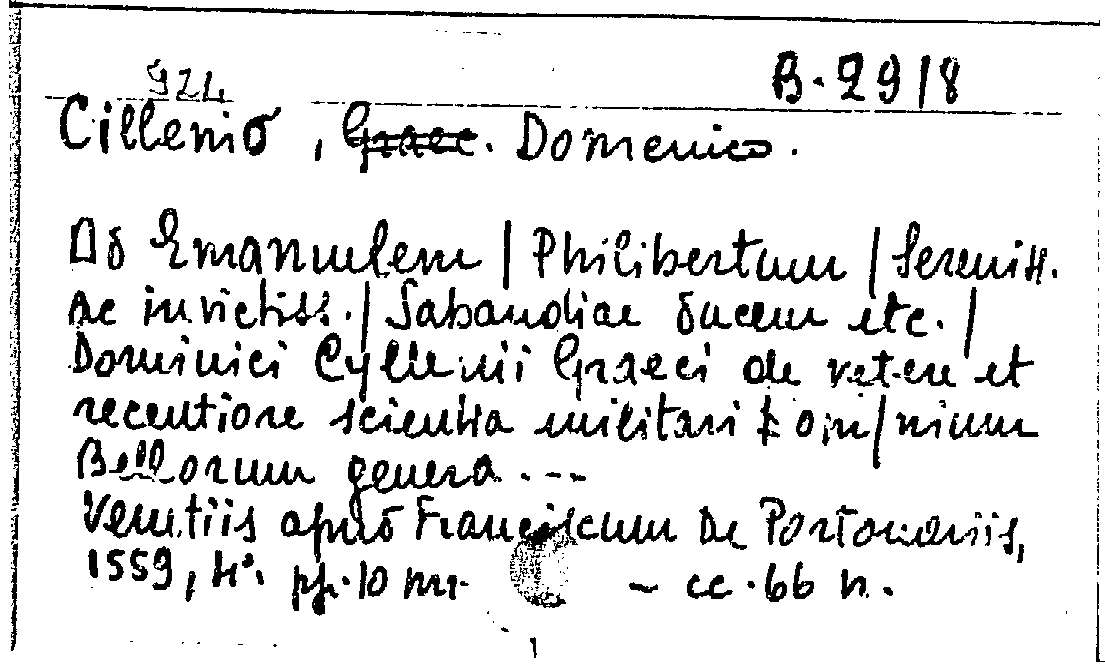 924
B. 29/8
Cillenio, Graec. Domenico.
Ad Emanuelem / Philibertum / Sereniss.
ac invictiss. / Sabaudiae ducem etc. /
Dominici Cyllenii Graeci de vetere et
recentiore scientia militari omnium
Bellorum genera ---
Venetiis apud Franciscum De Portonariis,
1559, 4°. pp. 10 nn. – cc. 66 n.